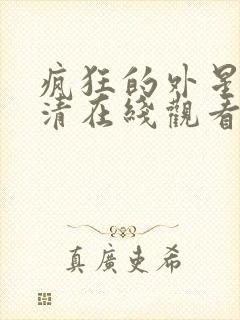 疯狂的外星
清在线觀看
真廣吏希